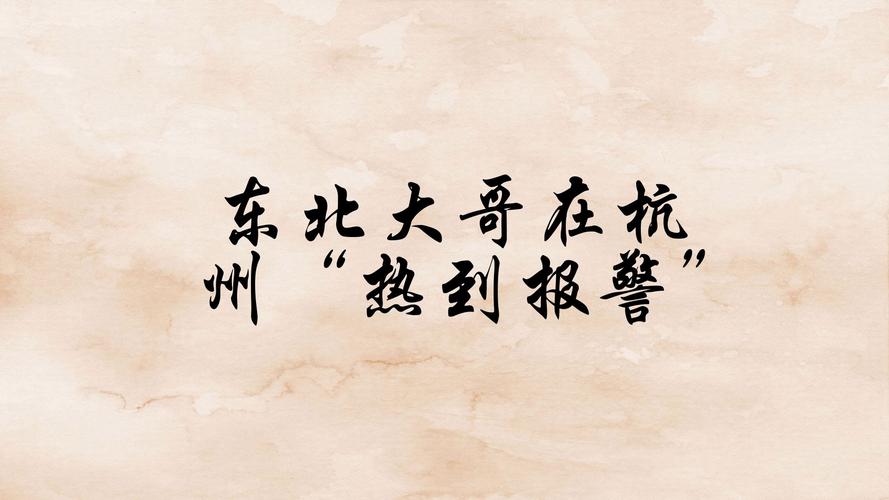 东北大哥在杭
州“热到报警”